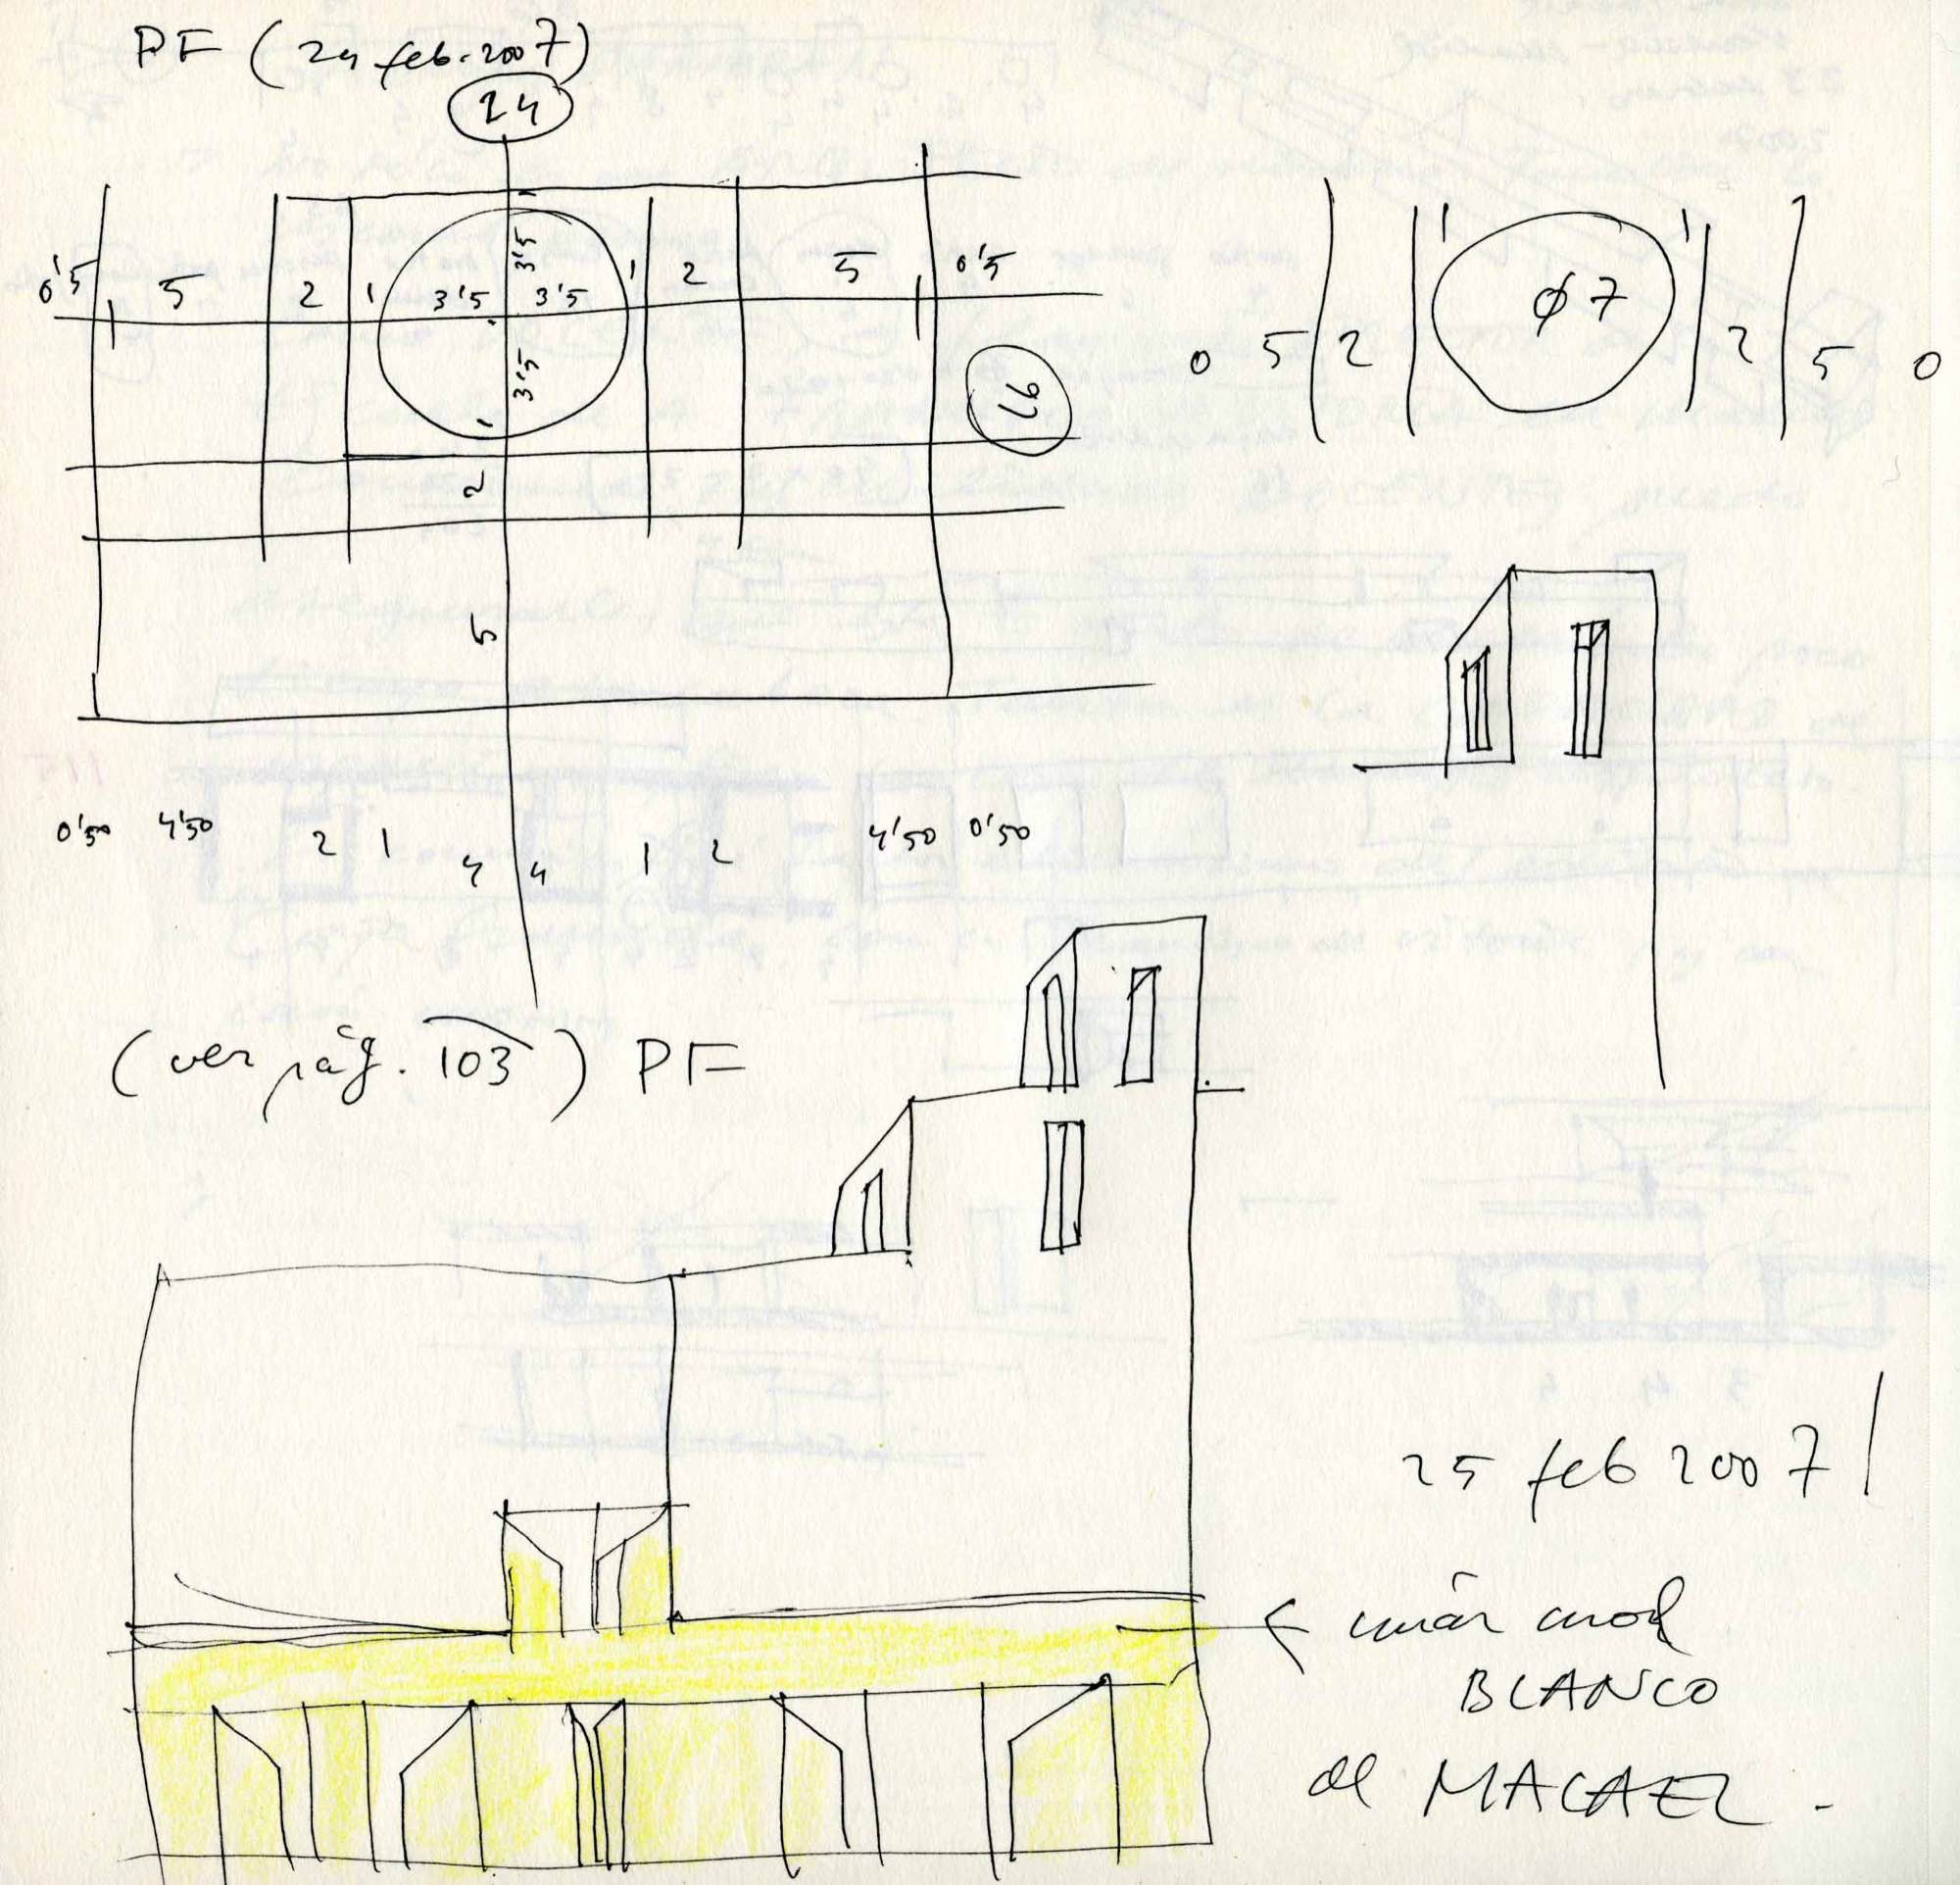 PF (24 feb. 2007)
24
0'5 5 2 1 3'5 3'5 1 2 5 0'5
3'5
3'5
1
2
5
16
1 1
ø7
0 5 2 2 5 0
0'50 4'50 2 1 4 4 1 2 4'50 0'50
(ver pág. 103) PF
25 feb 2007
BLANCO
de MACAEL.